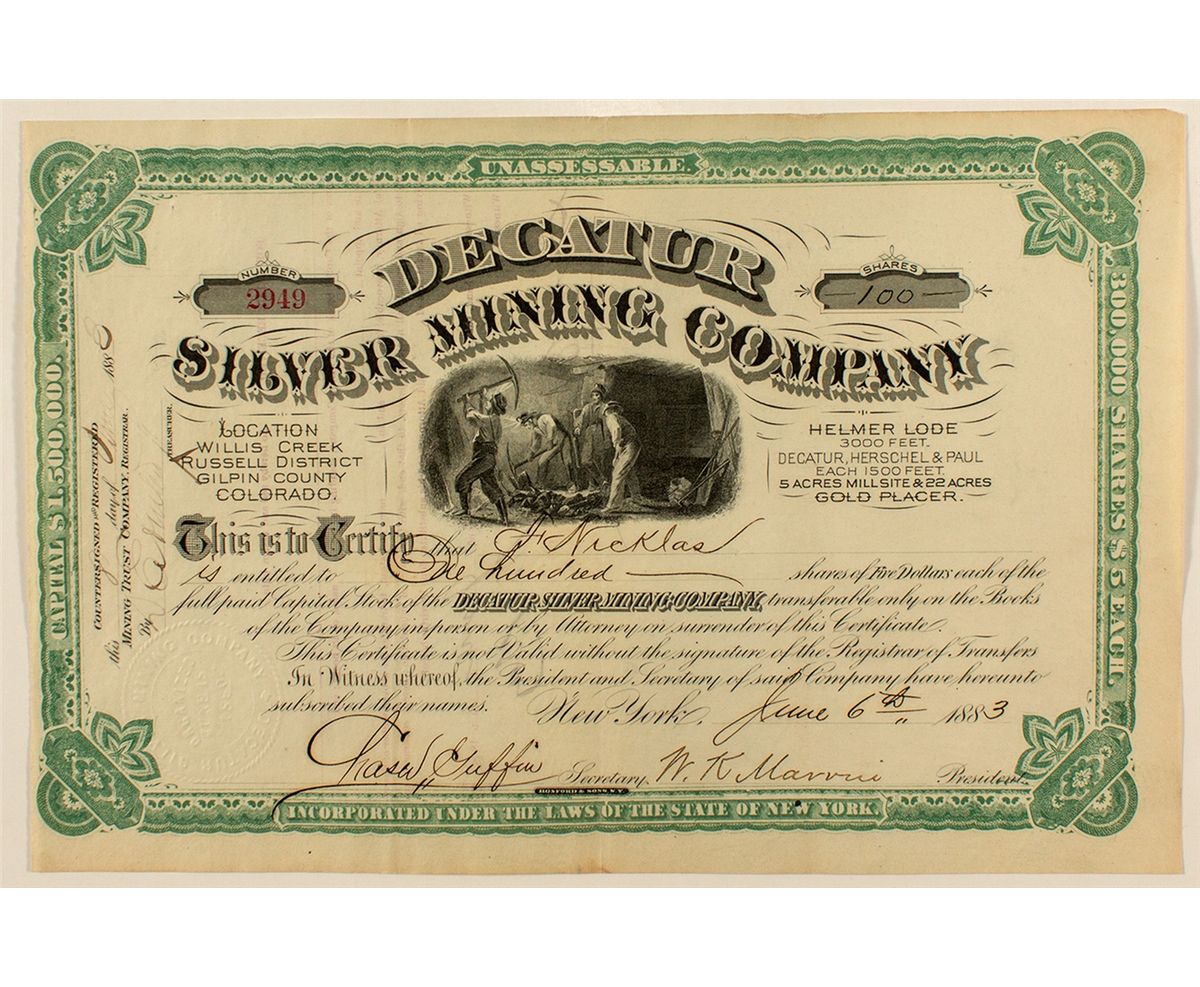 UNASSESSABLE.
NUMBER
2949
DECATUR
SILVER MINING COMPANY
SHARES
100
LOCATION
WILLIS CREEK
RUSSELL DISTRICT
GILPIN COUNTY
COLORADO.
HELMER LODE
3000 FEET.
DECATUR, HERSCHEL & PAUL
EACH 1500 FEET.
5 ACRES MILLSITE & 22 ACRES
GOLD PLACER.
This is to Certify that F. Nicklas
is entitled to One hundred shares of Five Dollars each of the
full paid Capital Stock of the DECATUR SILVER MINING COMPANY, transferable only on the Books
of the Company in person or by Attorney on surrender of this Certificate.
This Certificate is not Valid without the signature of the Registrar of Transfers
In Witness whereof, the President and Secretary of said Company have hereunto
subscribed their names. New York, June 6th 1883
Secretary, W. K. President.
HOSFORD & SONS, N.Y.
INCORPORATED UNDER THE LAWS OF THE STATE OF NEW YORK.
CAPITAL $1,500,000.
COUNTERSIGNED AND REGISTERED
this day of 188
MINING TRUST COMPANY, REGISTRAR.
By
300,000 SHARES $5 EACH.